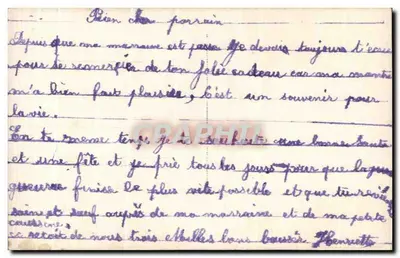 Bien cher parrain
Depuis que ma marraine est passé je devais toujours t'écrire
pour te remercier de ton jolie cadeau car ma montre
m'a bien fait plaisir, C'est un souvenir pour
la vie.
En te même temps je te souhaite une bonne Santé
et une fête et je prie tous les jours pour que la
guerre finisse le plus vite possible et que tu reviennes
sain et sauf auprès de ma marraine et de ma petite
cousine
ce serait de nous trois Milles bons baisers Henriette